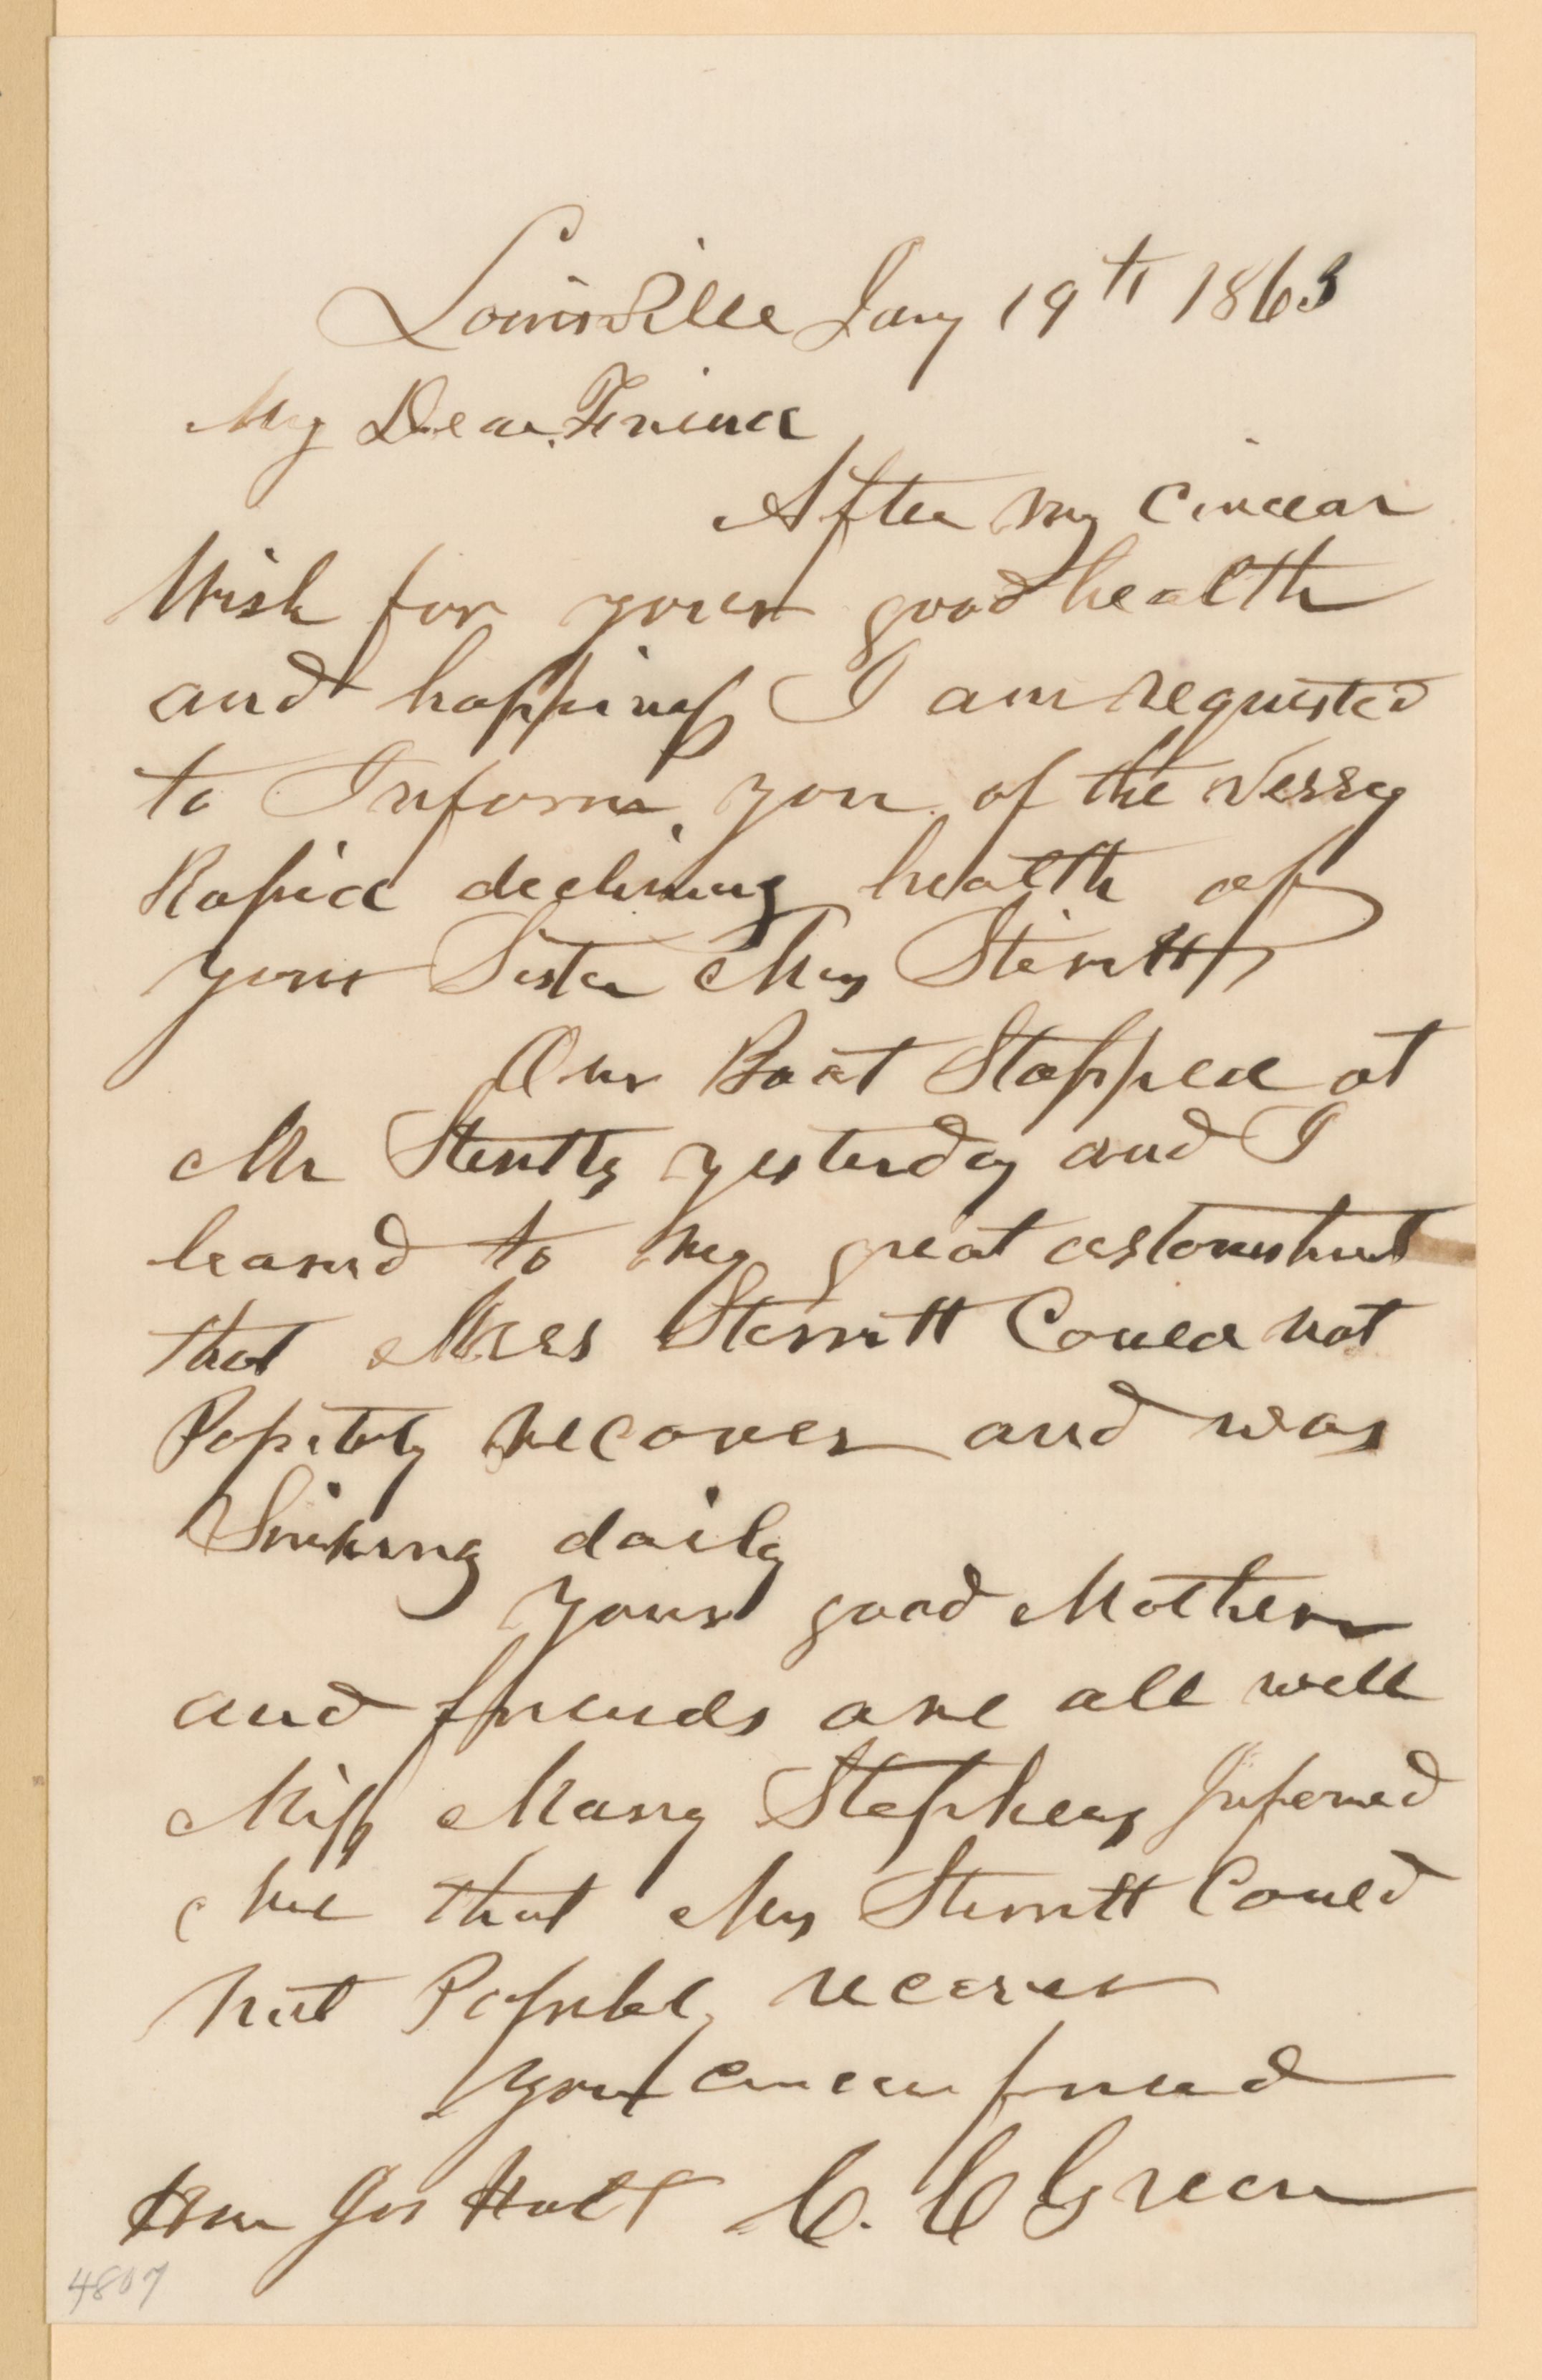 Louisville Jany 19th 1863
My Dear Friend
After my cincear
Wish for your good health
and happiness I am requested
to Inform you of the verry
Rapid declining health of
your Sister Mrs Steritt
Our Boat Stopped at
Mr Steritts yesterday and I
learnd to my great astonishment
that Mrs Sterritt Could not
recover and was
Sinking daily
your good Mother
and friends are all well
Miss Mary Stephens Informed
me that Mrs Sterritt Could
not Possibly recover
your friend
Hon Jos Holt C. C Green
4807